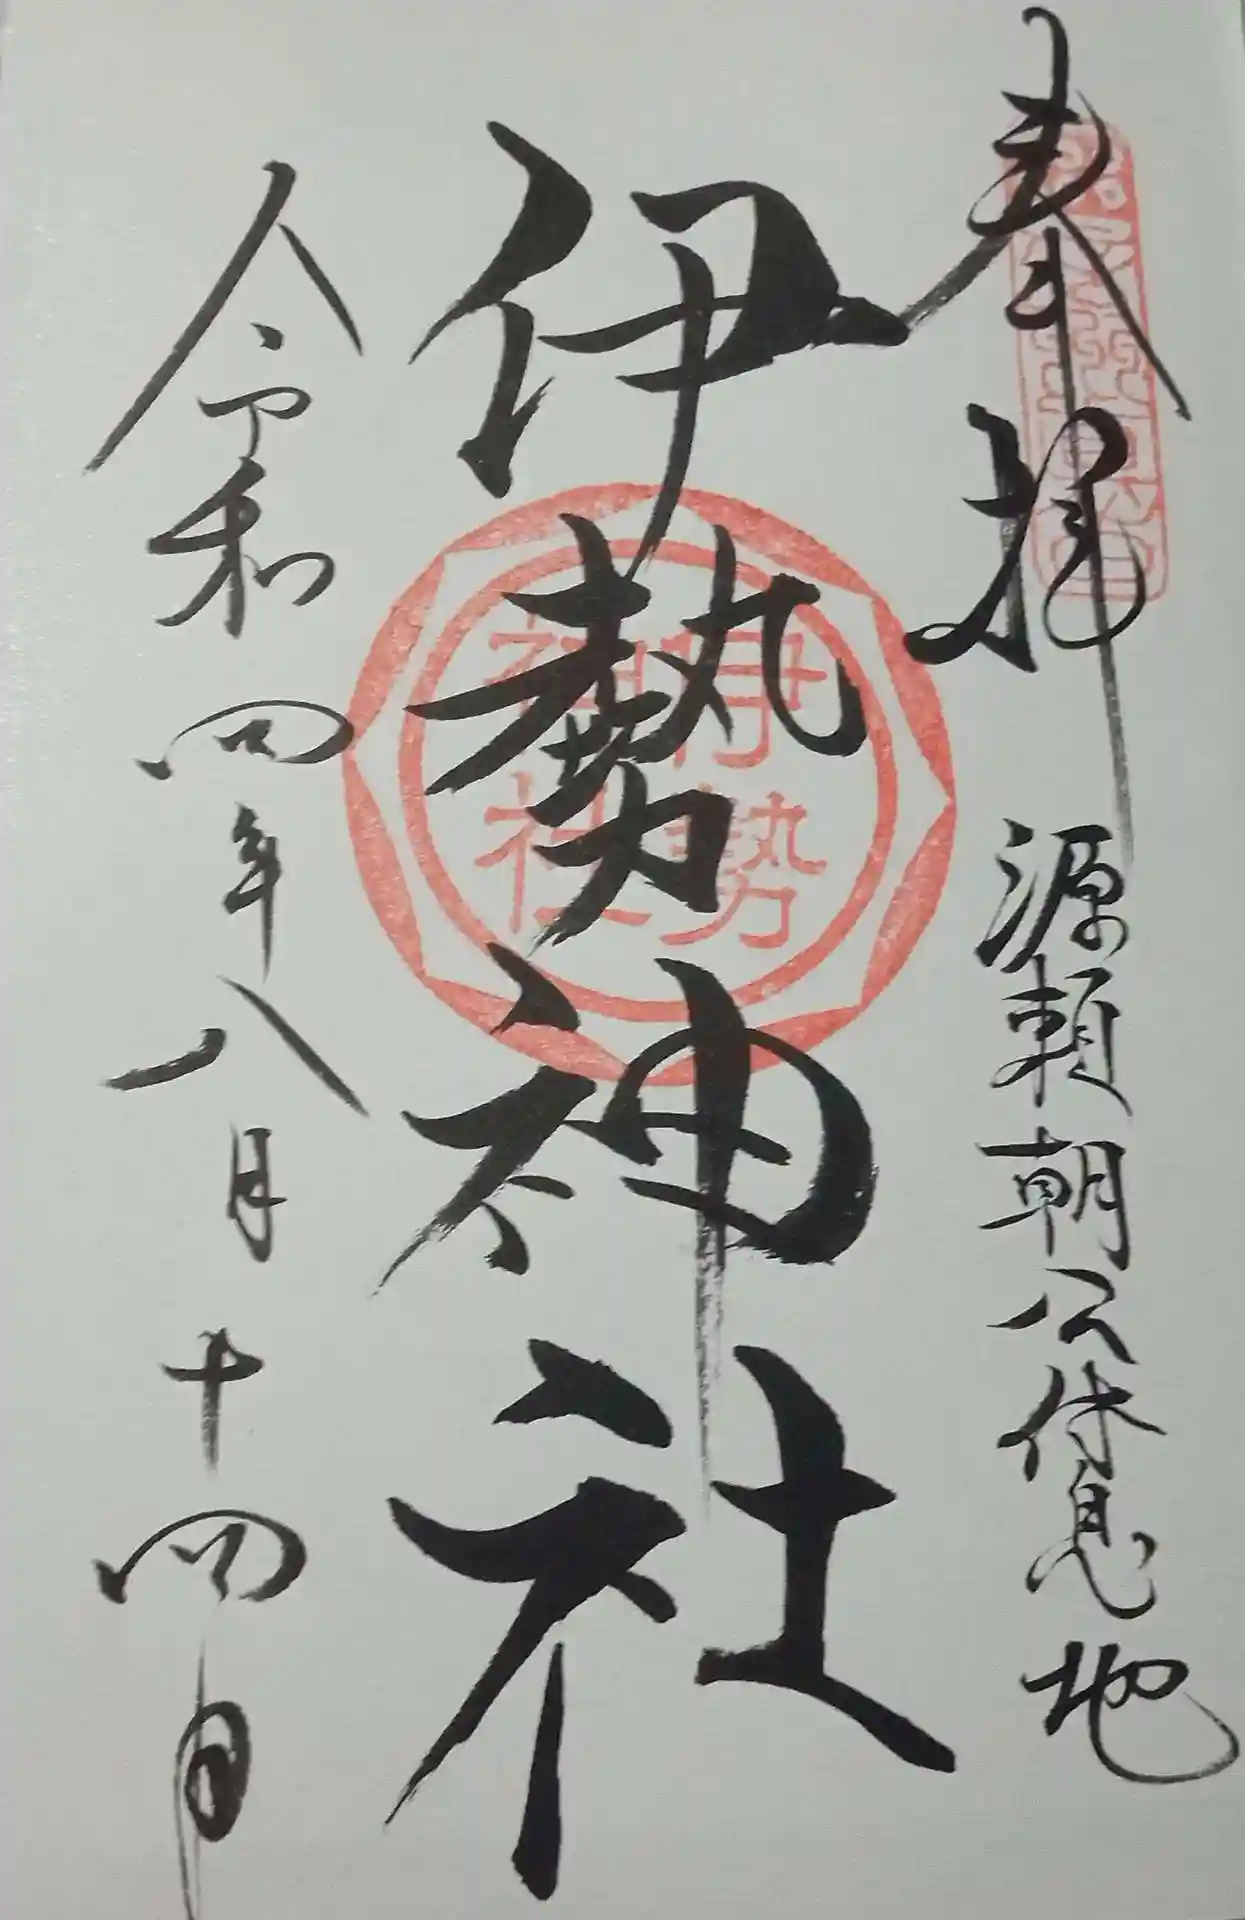 奉拝 源頼朝公休息地
伊勢神社
伊勢
神社
令和四年八月十四日